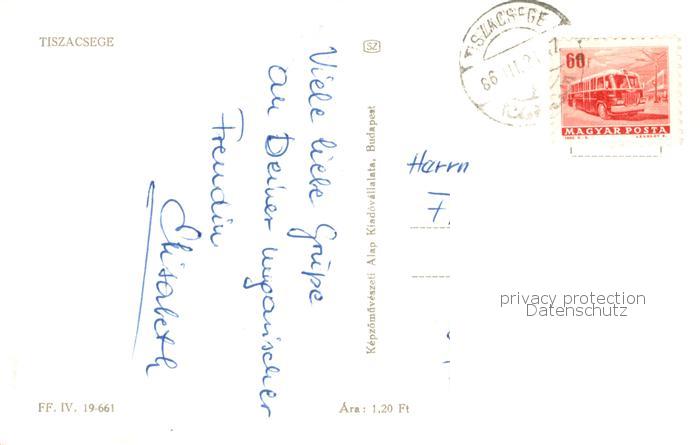 TISZACSEGE
SZ
Viele liebe Grüpe
an Deiner ungarischer
Freudin
Elisabeth
Képzőművészeti Alap Kiadóvállalata, Budapest
TISZACSEGE
60f
MAGYAR POSTA
Herrn
privacy protection
Datenschutz
FF. IV. 19-661
Ára: 1,20 Ft